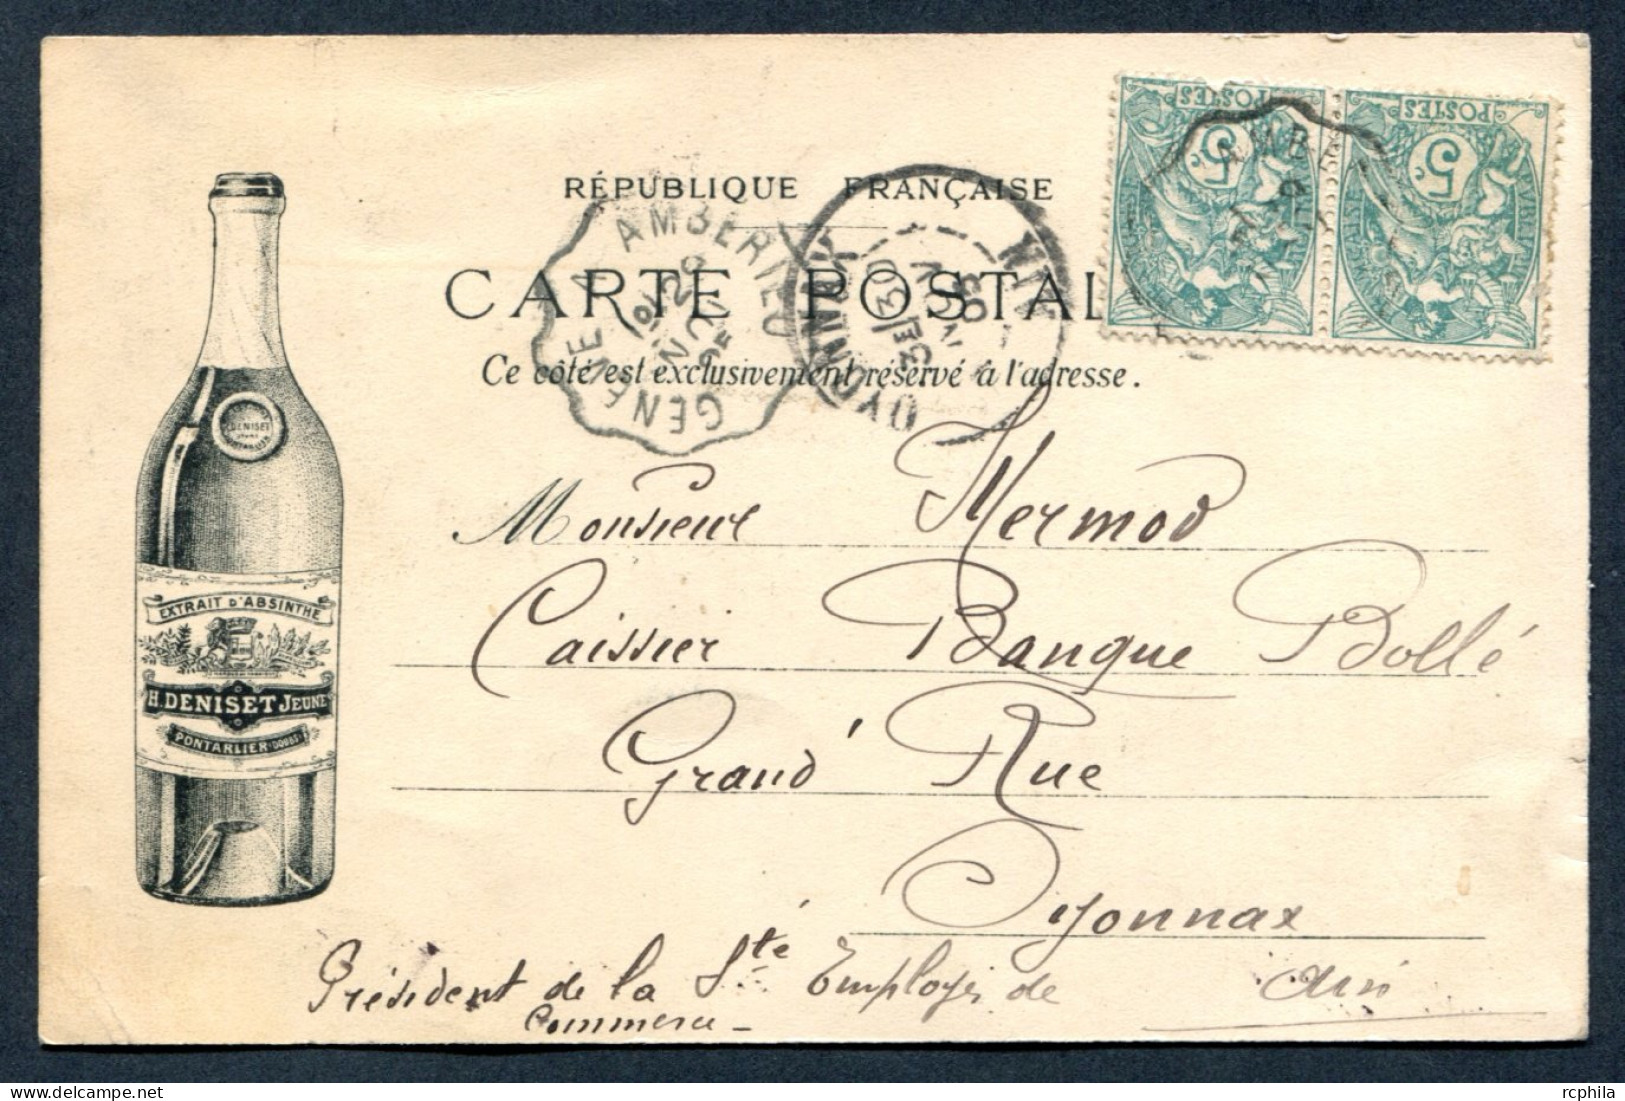 RÉPUBLIQUE FRANÇAISE
CARTE POSTAL
Ce côté est exclusivement réservé à l'adresse.
GENÈVE A AMBERIEU
OYONNAX
AIN
POSTES
5c
POSTES
5c
DENISET
EXTRAIT D'ABSINTHE
H. DENISET JEUNE
PONTARLIER (DOUBS)
Monsieur Mermod
Caissier Banque Bollé
Grand' Rue
Oyonnax
Ain
Président de la Sté Employés de
Commerce -
rcphila